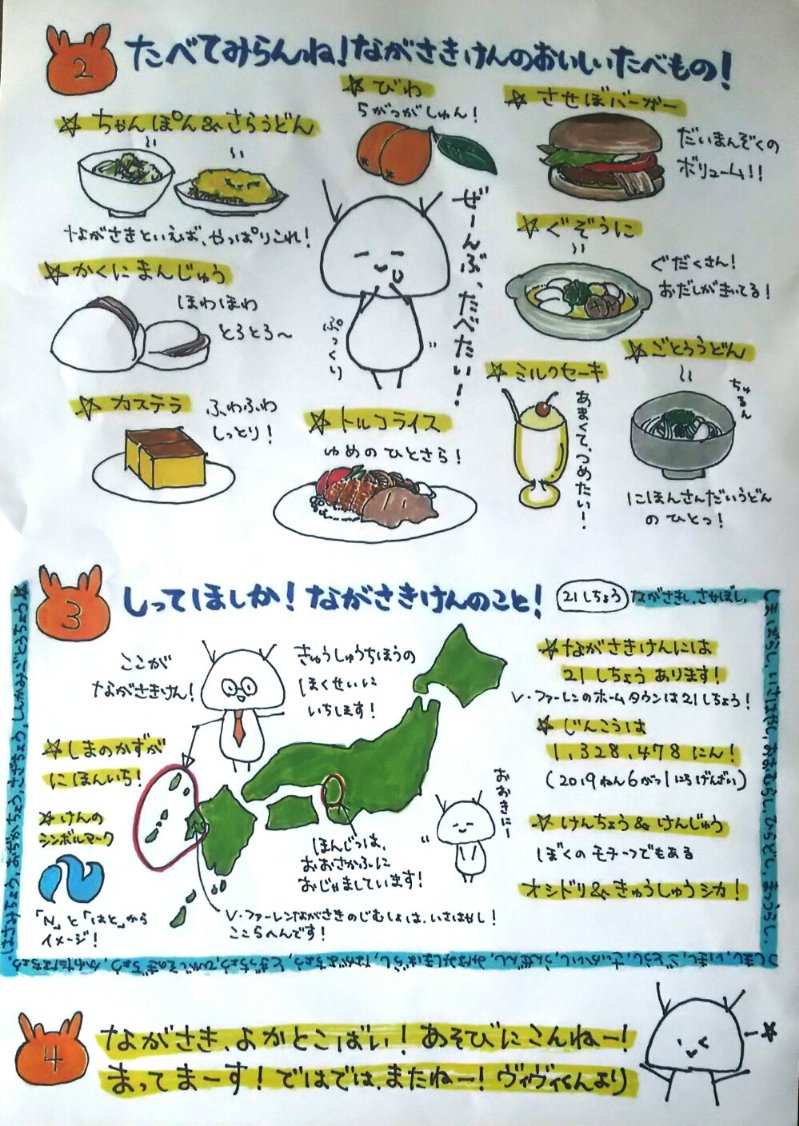 2
たべてみらんね!ながさきけんのおいしいたべもの!
☆ちゃんぽん&さらうどん
ながさきといえば、やっぱりこれ!
☆びわ
6がつがしゅん!
☆させぼバーガー
だいまんぞくの
ボリューム!!
☆かくにまんじゅう
ほわほわ
とろとろ～
ぜーんぶ、たべたい!
ぷっくり
☆ぐぞうに
ぐだくさん!
おだしがきいてる!
☆カステラ
ふわふわ
しっとり!
☆トルコライス
ゆめのひとさら!
☆ミルクセーキ
あまくて、つめたい!
☆ごとううどん
ちゅるん
にほんさんだいうどん
のひとつ!
3
しってほしか!ながさきけんのこと!
21しちょう
ながさきし、させぼし、
しまばらし、いさはやし、おおむらし、ひらどし、まつうらし、
つしまし、いきし、ごとうし、さいかいし、うんぜんし、みなみしまばらし、ながよちょう、とぎつちょう、ひがしそのぎちょう、かわたなちょう、
はさみちょう、おぢかちょう、さざちょう、しんかみごとうちょう☆
ここが
ながさきけん!
きゅうしゅうちほうの
ほくせいに
いちします!
☆しまのかずが
にほんいち!
☆けんの
シンボルマーク
「N」と「はと」から
イメージ!
ほんじつは、
おおさかふに
おじゃましています!
おおきにー
V・ファーレンながさきのじむしょは、いさはやし!
ここらへんです!
☆ながさきけんには
21しちょうあります!
V・ファーレンのホームタウンは21しちょう!
☆じんこうは
1,328,478にん!
(2019ねん6がつ1にちげんざい)
☆けんちょう&けんじゅう
ぼくのモチーフでもある
オシドリ&きゅうしゅうシカ!
4
ながさき、よかとこばい!あそびにこんねー!
まってまーす!ではでは、またねー!ヴィヴィくんより